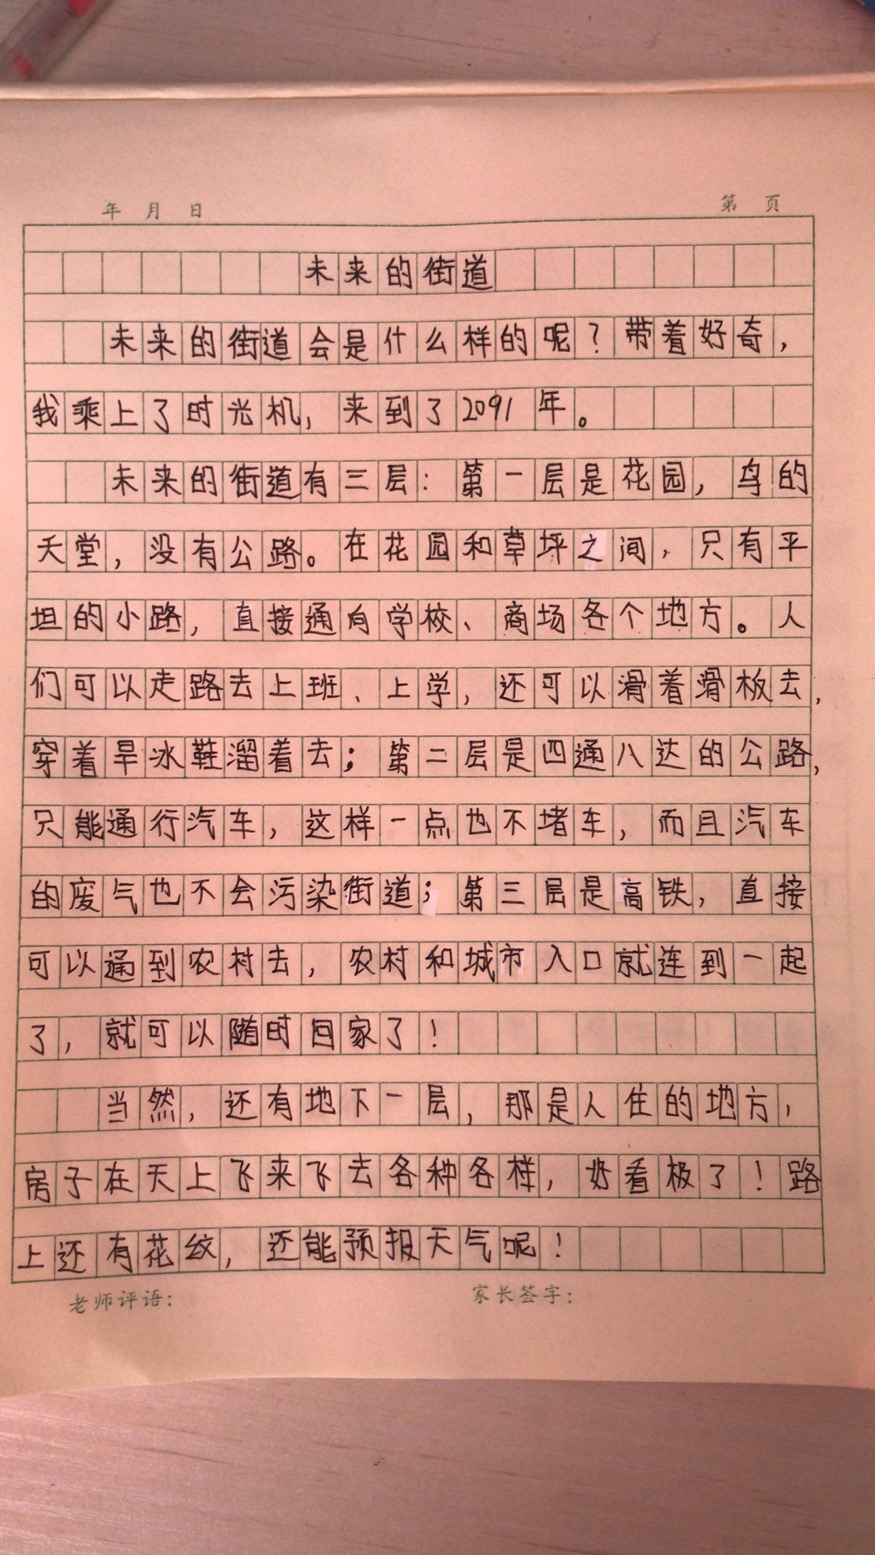 年 月 日 第 页
未来的街道
未来的街道会是什么样的呢？带着好奇，
我乘上了时光机，来到了2091年。
未来的街道有三层：第一层是花园，鸟的
天堂，没有公路。在花园和草坪之间，只有平
坦的小路，直接通向学校、商场各个地方。人
们可以走路去上班、上学，还可以滑着滑板去，
穿着旱冰鞋溜着去；第二层是四通八达的公路，
只能通行汽车，这样一点也不堵车，而且汽车
的废气也不会污染街道；第三层是高铁，直接
可以通到农村去，农村和城市入口就连到一起
了，就可以随时回家了！
当然，还有地下一层，那是人住的地方，
房子在天上飞来飞去各种各样，好看极了！路
上还有花纹，还能预报天气呢！
老师评语： 家长签字：